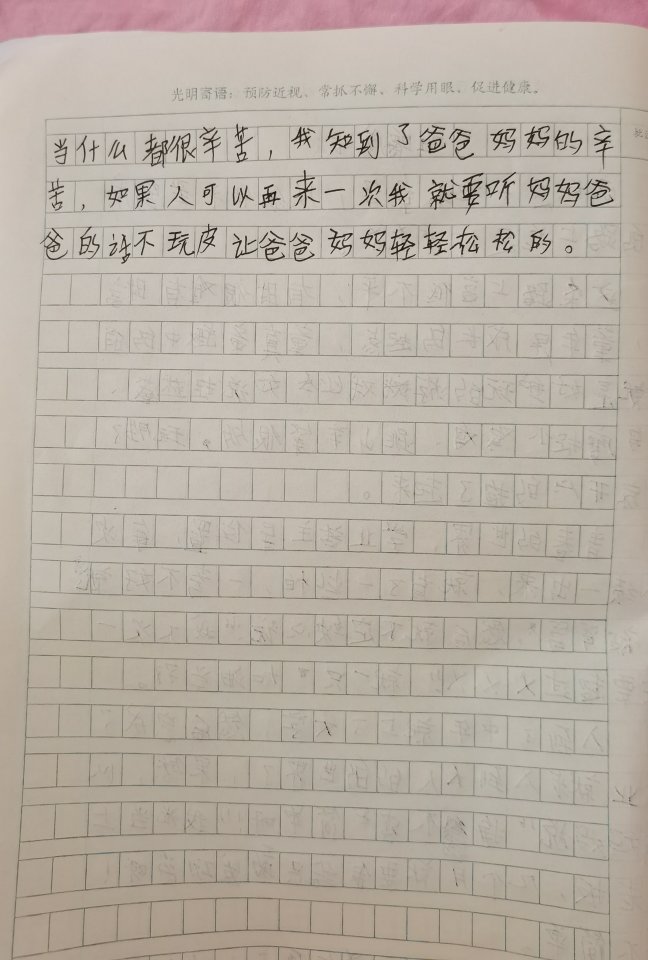 光明寄语：预防近视、常抓不懈、科学用眼、促进健康。
当什么都很辛苦，我知到了爸爸妈妈的辛
苦，如果人可以再来一次我就要听妈妈爸
爸的话不玩皮让爸爸妈妈轻轻松松的。